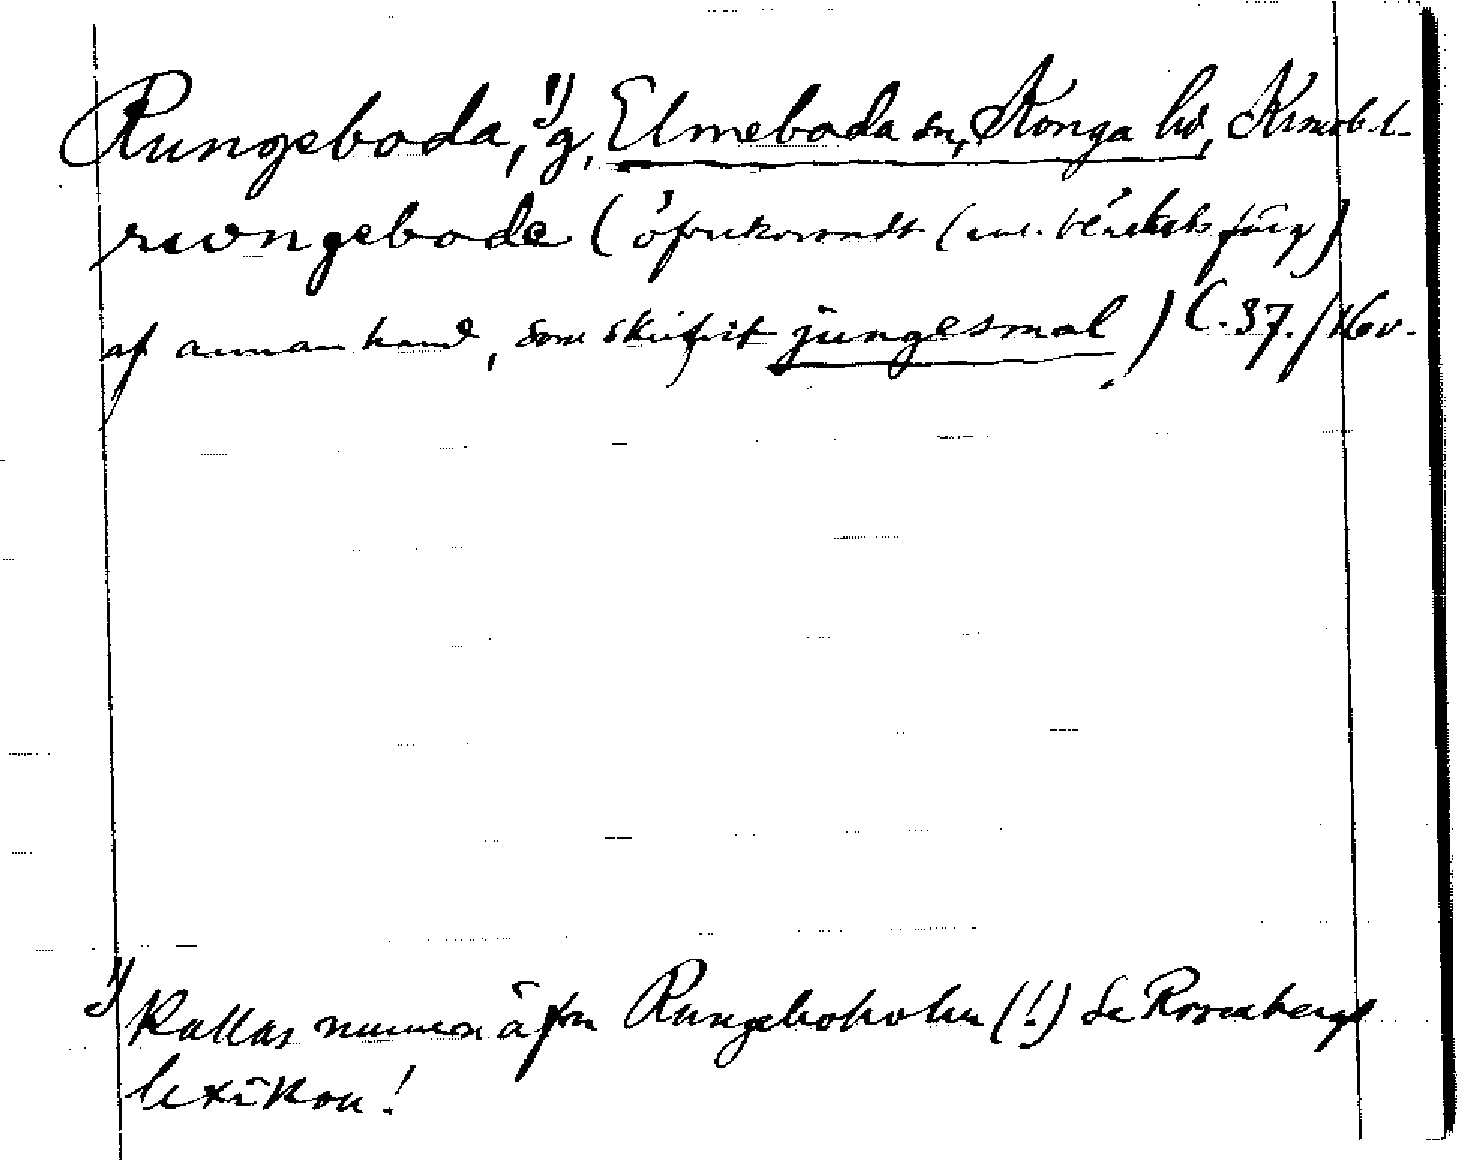 Rungeboda,¹⁾ g, Elmeboda sn, Konga hd, Kronob. l.
rwngebode (öfverkorsadt (
af annan hand, som skrifvit jungesmal) C. 37. / 16 v.
¹⁾ Kallas numera äfven Rungeboholm (!) se Rosenbergs
lexikon!